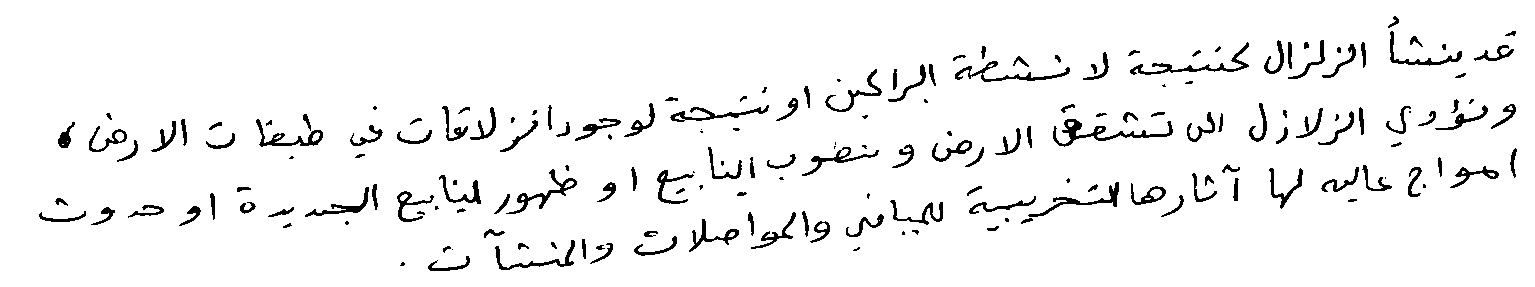 قد ينشأ الزلزال كنتيجة لانشطة البراكين او نتيجة لوجود انزلاقات في طبقات الارض ،
وتؤدي الزلازل الى تشقق الارض و نضوب الينابيع او ظهور الينابيع الجديدة او حدوث
امواج عاليه لها آثارها التخريبية للمباني والمواصلات والمنشآت .